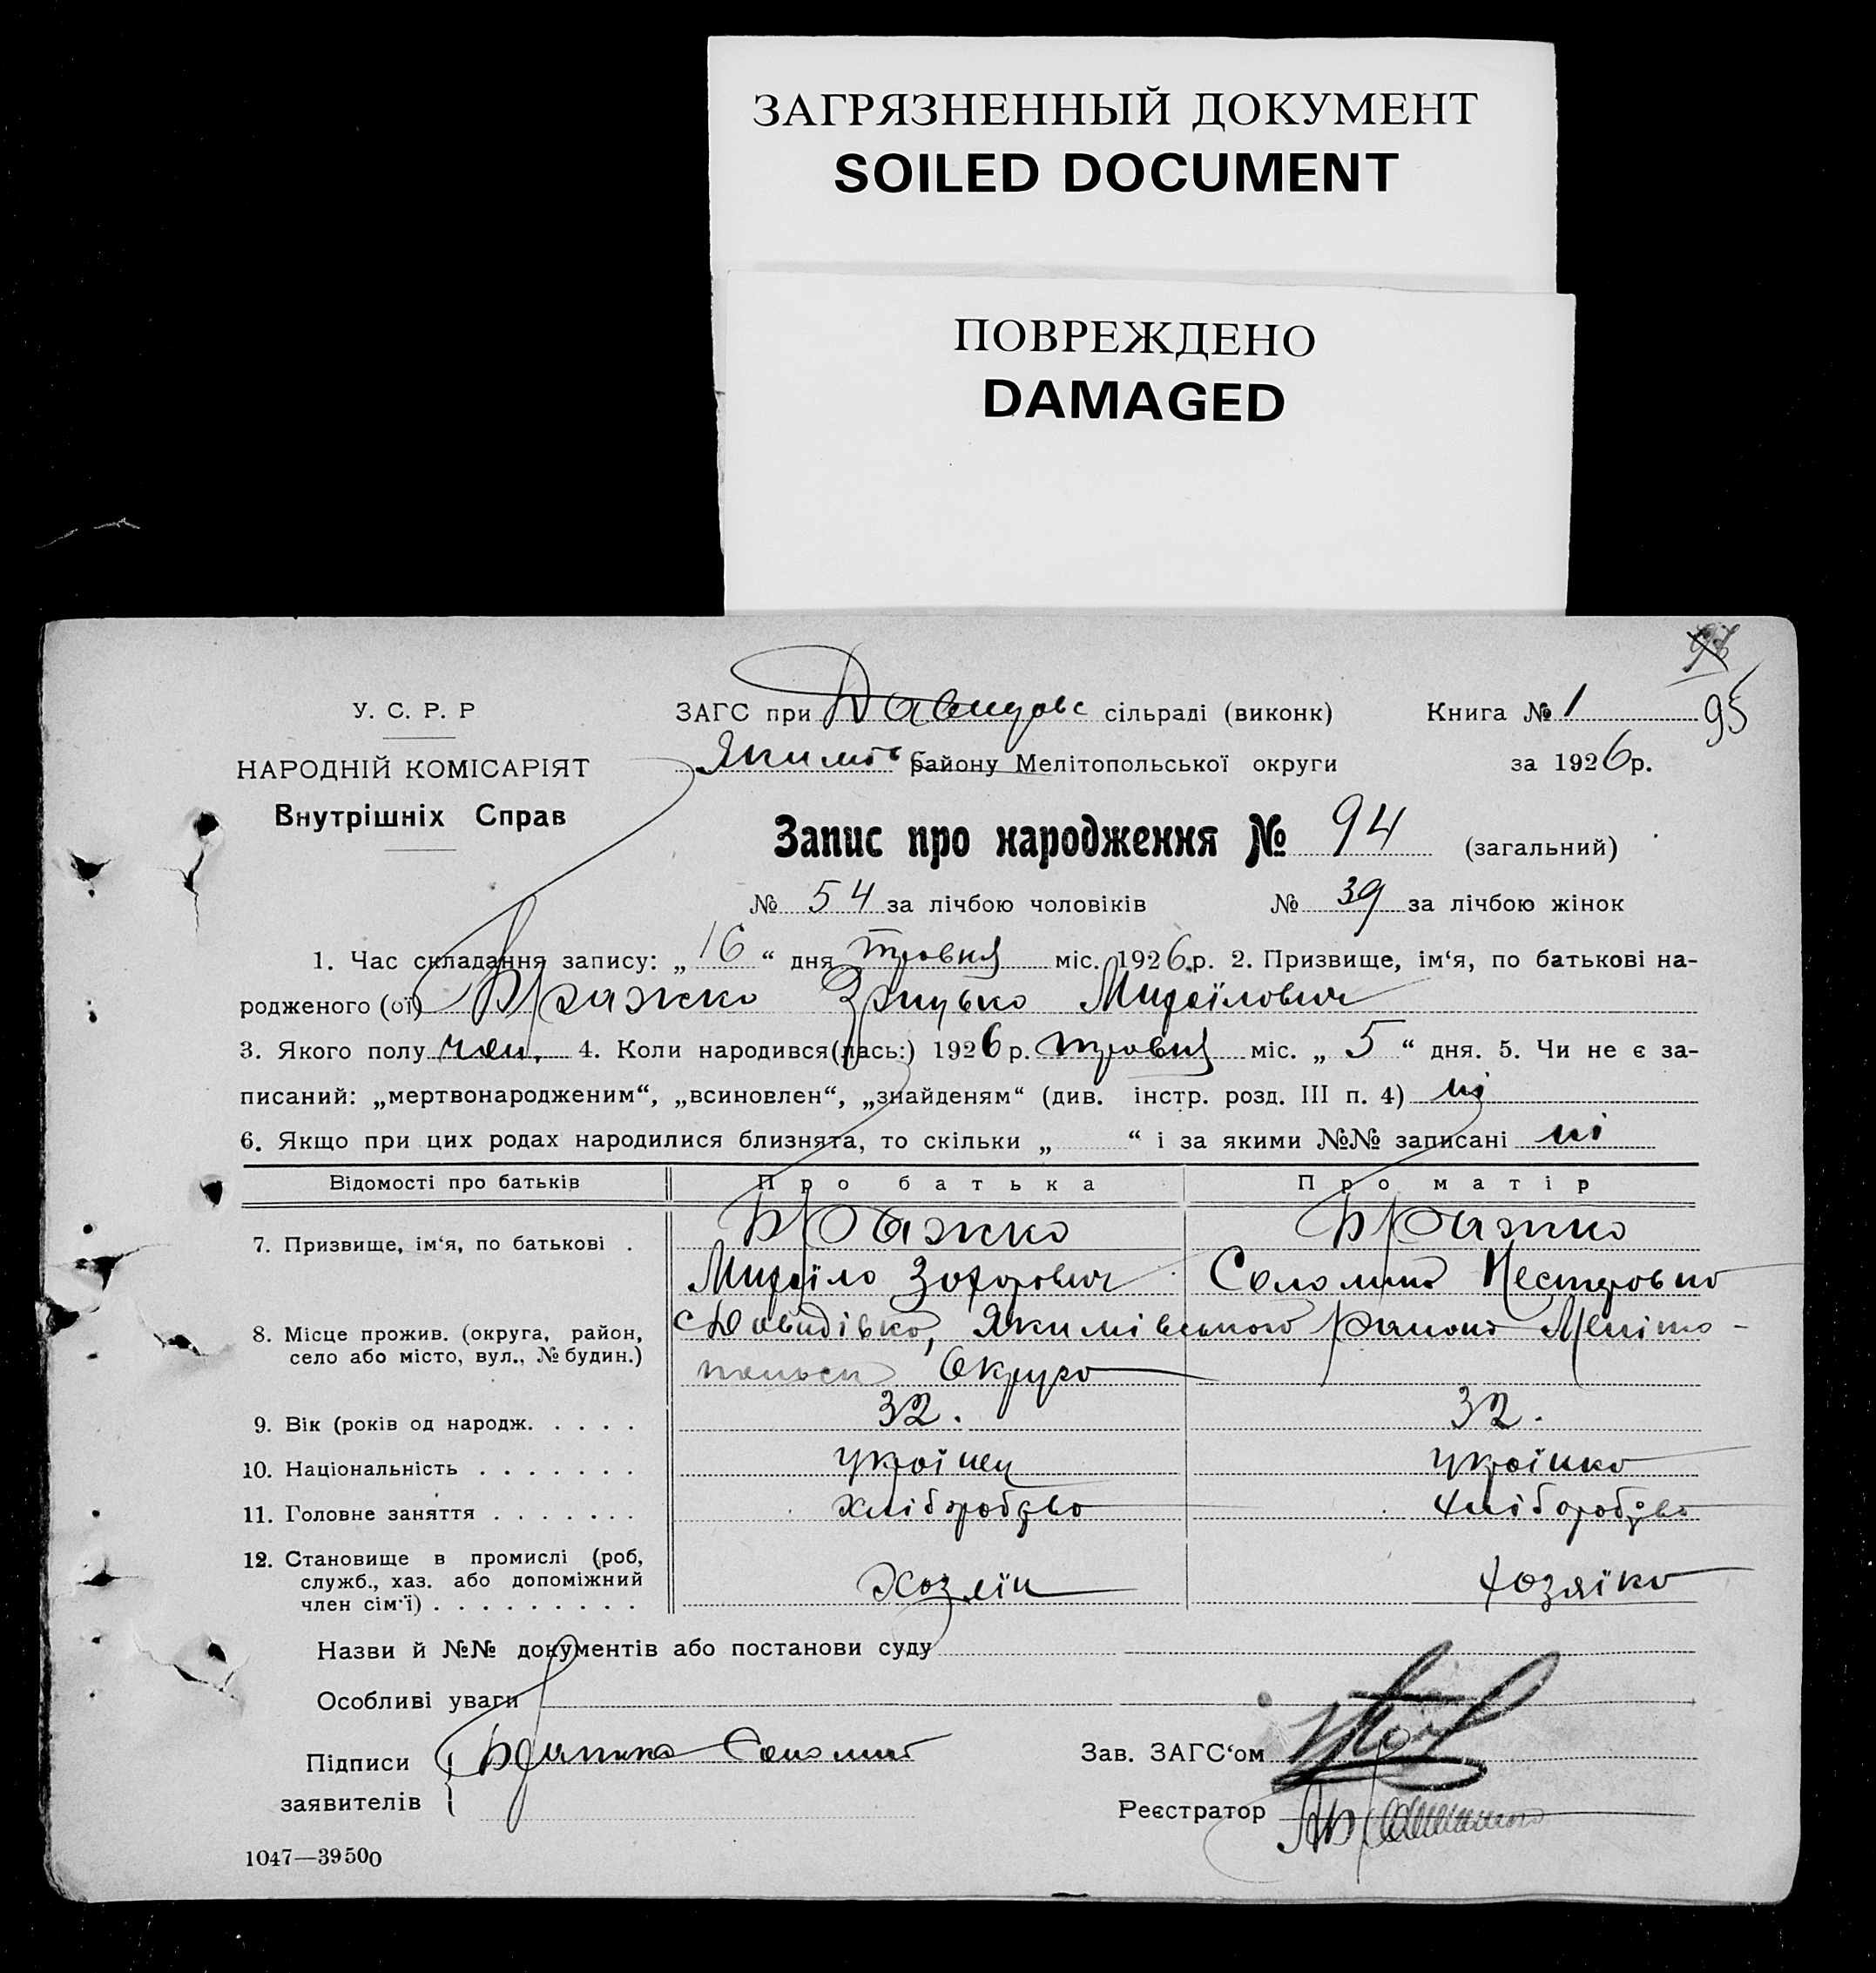 ЗАГРЯЗНЕННЫЙ ДОКУМЕНТ
SOILED DOCUMENT
ПОВРЕЖДЕНО
DAMAGED
95
У. С. Р. Р
НАРОДНІЙ КОМІСАРІЯТ
Внутрішніх Справ
ЗАГС при Давидовс сільраді (виконк) Книга № 1
Якимів району Мелітопольської округи за 1926 р.
Запис про народження № 94 (загальний)
№ 54 за лічбою чоловіків № 39 за лічбою жінок
1. Час складання запису: „ 16 “ дня травня міс. 1926 р. 2. Призвище, ім‘я, по батькові на-
родженого (ої) Бражко Грицько Михайлович
3. Якого полу чол. 4. Коли народився(лась:) 1926 р. травня міс. „ 5 “ дня. 5. Чи не є за-
писаний: „мертвонародженим“, „всиновлен“, „знайденям“ (див. інстр. розд. III п. 4) ні
6. Якщо при цих родах народилися близнята, то скільки „ “ і за якими №№ записані ні
Відомості про батьків Про батька Про матір
7. Призвище, ім‘я, по батькові . Бражко Бражко
Михайло Захарович Соломия Нестеровна
8. Місце прожив. (округа, район, село або місто, вул., № будин.) Давидівка, Якимівського району Меліто-
польск Округа
9. Вік (років од народж. . . . . 32. 32.
10. Національність . . . . . . . українец українка
11. Головне заняття . . . . . . . хліборобство хліборобство
12. Становище в промислі (роб, служб., хаз. або допоміжний член сім‘ї) . . . . . . . . . Хозяїн Хозяїка
Назви й №№ документів або постанови суду
Особливі уваги
Підписи заявителів Бражко Соломия Зав. ЗАГС‘ом
Реєстратор
1047—39500